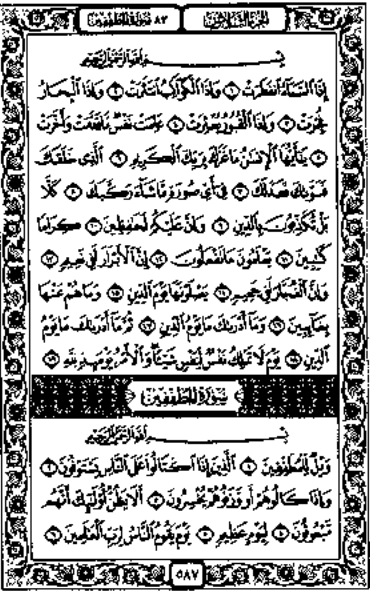 ٨٣ سورة المطففين الجزء الثلاثون
بسم الله الرحمن الرحيم
إِذَا السَّمَاءُ انفَطَرَتْ ١ وَإِذَا الْكَوَاكِبُ انتَثَرَتْ ٢ وَإِذَا الْبِحَارُ
فُجِّرَتْ ٣ وَإِذَا الْقُبُورُ بُعْثِرَتْ ٤ عَلِمَتْ نَفْسٌ مَّا قَدَّمَتْ وَأَخَّرَتْ
٥ يَا أَيُّهَا الْإِنسَانُ مَا غَرَّكَ بِرَبِّكَ الْكَرِيمِ ٦ الَّذِي خَلَقَكَ
فَسَوَّاكَ فَعَدَلَكَ ٧ فِي أَيِّ صُورَةٍ مَّا شَاءَ رَكَّبَكَ ٨ كَلَّا
بَلْ تُكَذِّبُونَ بِالدِّينِ ٩ وَإِنَّ عَلَيْكُمْ لَحَافِظِينَ ١٠ كِرَامًا
كَاتِبِينَ ١١ يَعْلَمُونَ مَا تَفْعَلُونَ ١٢ إِنَّ الْأَبْرَارَ لَفِي نَعِيمٍ ١٣
وَإِنَّ الْفُجَّارَ لَفِي جَحِيمٍ ١٤ يَصْلَوْنَهَا يَوْمَ الدِّينِ ١٥ وَمَا هُمْ عَنْهَا
بِغَائِبِينَ ١٦ وَمَا أَدْرَاكَ مَا يَوْمُ الدِّينِ ١٧ ثُمَّ مَا أَدْرَاكَ مَا يَوْمُ
الدِّينِ ١٨ يَوْمَ لَا تَمْلِكُ نَفْسٌ لِّنَفْسٍ شَيْئًا وَالْأَمْرُ يَوْمَئِذٍ لِّلَّهِ ١٩
سورة المطففين
بسم الله الرحمن الرحيم
وَيْلٌ لِّلْمُطَفِّفِينَ ١ الَّذِينَ إِذَا اكْتَالُوا عَلَى النَّاسِ يَسْتَوْفُونَ ٢
وَإِذَا كَالُوهُمْ أَو وَّزَنُوهُمْ يُخْسِرُونَ ٣ أَلَا يَظُنُّ أُولَئِكَ أَنَّهُم
مَّبْعُوثُونَ ٤ لِيَوْمٍ عَظِيمٍ ٥ يَوْمَ يَقُومُ النَّاسُ لِرَبِّ الْعَالَمِينَ ٦
٥٨٧